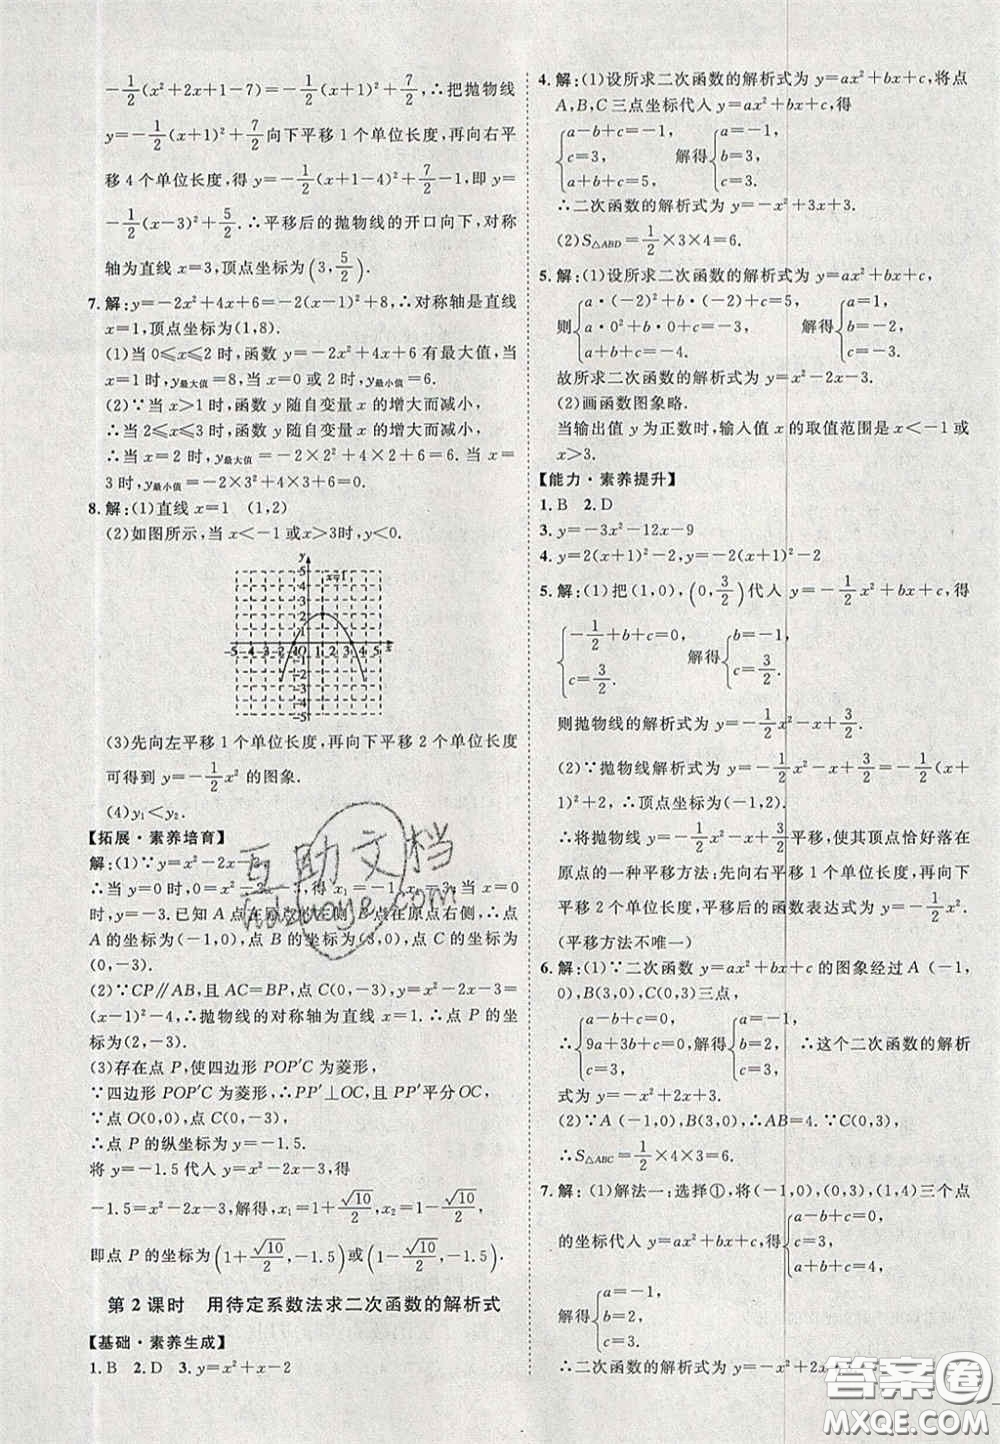 −1/2(x²+2x+1−7)=−1/2(x+1)²+7/2,∴把抛物线
y=−1/2(x+1)²+7/2向下平移1个单位长度,再向右平
移4个单位长度,得 y=−1/2(x+1−4)²+7/2−1,即 y=
−1/2(x−3)²+5/2.∴平移后的抛物线的开口向下,对称
轴为直线 x=3,顶点坐标为(3,5/2).
7.解:y=−2x²+4x+6=−2(x−1)²+8,∴对称轴是直线
x=1,顶点坐标为(1,8).
(1)当 0⩽x⩽2 时,函数 y=−2x²+4x+6 有最大值,当
x=1 时,y最大值=8,当 x=0 或 2 时,y最小值=6.
(2)∵当 x>1 时,函数 y 随自变量 x 的增大而减小,
∴当 2⩽x⩽3 时,函数 y 随自变量 x 的增大而减小,
∴当 x=2 时,y最大值=−2×2²+4×2+6=6,
当 x=3 时,y最小值=−2×3²+4×3+6=0.
8.解:(1)直线 x=1 (1,2)
(2)如图所示,当 x<−1 或 x>3时,y<0.
y
x=1
5
4
3
2
1
−5−4−3−2−1O 1 2 3 4 5 x
−1
−2
−3
−4
−5
(3)先向左平移 1 个单位长度,再向下平移 2 个单位长度
可得到 y=−1/2x² 的图象.
(4)y₁<y₂.
【拓展·素养培育】
解:(1)∵y=x²−2x−3,
∴当 y=0 时,0=x²−2x−3,得 x₁=−1,x₂=3,当 x=0
时,y=−3.已知 A 点在原点左侧,B 点在原点右侧,∴点
A 的坐标为(−1,0),点 B 的坐标为(3,0),点 C 的坐标为
(0,−3).
(2)∵CP∥AB,且 AC=BP,点 C(0,−3),y=x²−2x−3=
(x−1)²−4,∴抛物线的对称轴为直线 x=1.∴点 P 的坐标为
(2,−3).
(3)存在点 P,使四边形 POP′C 为菱形,
∵四边形 POP′C 为菱形,∴PP′⊥OC,且 PP′平分OC,
∵点 O(0,0),点 C(0,−3),
∴点 P 的纵坐标为 y=−1.5.
将 y=−1.5 代入 y=x²−2x−3,得
−1.5=x²−2x−3,解得,x₁=1+√10/2,x₂=1−√10/2,
即点 P 的坐标为(1+√10/2,−1.5)或(1−√10/2,−1.5).
第 2 课时 用待定系数法求二次函数的解析式
【基础·素养生成】
1.B 2.D 3.y=x²+x−2
4.解:(1)设所求二次函数的解析式为 y=ax²+bx+c,将点
A,B,C 三点坐标代入 y=ax²+bx+c,得
{a−b+c=−1, {a=−1,
c=3, 解得 b=3,
a+b+c=5, c=3.
∴二次函数的解析式为 y=−x²+3x+3.
(2)S△ABD=1/2×3×4=6.
5.解:(1)设所求二次函数的解析式为 y=ax²+bx+c,
{a·(−2)²+b·(−2)+c=5, {a=1,
则 a·0²+b·0+c=−3, 解得 b=−2,
a+b+c=−4. c=−3.
故所求二次函数的解析式为 y=x²−2x−3.
(2)画函数图象略.
当输出值 y 为正数时,输入值 x 的取值范围是 x<−1 或
x>3.
【能力·素养提升】
1.B 2.D
3.y=−3x²−12x−9
4.y=2(x+1)²−2,y=−2(x+1)²−2
5.解:(1)把(1,0),(0,3/2)代入 y=−1/2x²+bx+c,得
{−1/2+b+c=0, {b=−1,
c=3/2. 解得 c=3/2.
则抛物线的解析式为 y=−1/2x²−x+3/2.
(2)∵抛物线解析式为 y=−1/2x²−x+3/2=−1/2(x+
1)²+2,∴顶点坐标为(−1,2).
∴将抛物线 y=−1/2x²−x+3/2平移,使其顶点恰好落在
原点的一种平移方法:先向右平移1个单位长度,再向下
平移 2 个单位长度,平移后的函数表达式为 y=−1/2x².
(平移方法不唯一)
6.解:(1)∵二次函数 y=ax²+bx+c 的图象经过 A (−1,
0),B(3,0),C(0,3)三点,
{a−b+c=0, {a=−1,
∴ 9a+3b+c=0,解得 b=2, ∴这个二次函数的解析
c=3, c=3.
式为 y=−x²+2x+3.
(2)∵A (−1,0),B(3,0),C(0,3),
∴S△ABC=1/2×4×3=6.
7.解:(1)解法一:选择①,将(−1,0),(0,3),(1,4)三个点
的坐标代入 y=ax²+bx+c,得 {a−b+c=0,
c=3,
a+b+c=4,
{a=−1,
解得 b=2,
c=3.
∴二次函数的解析式为 y=−x²+2x
互助文档
hdzuoye.com
答案圈
MXQE.COM